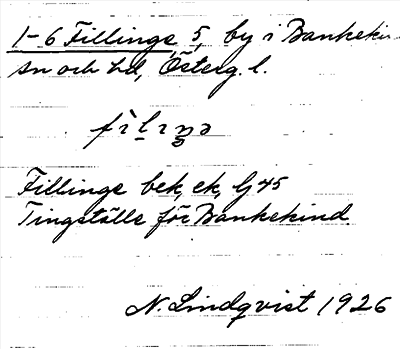 1-6 Fillinge 5, by i Bankeki
sn och hd, Österg. l.
Fillinge bek, ek, Gj 45
Tingställe för Bankekind.
N. Lindqvist 1926